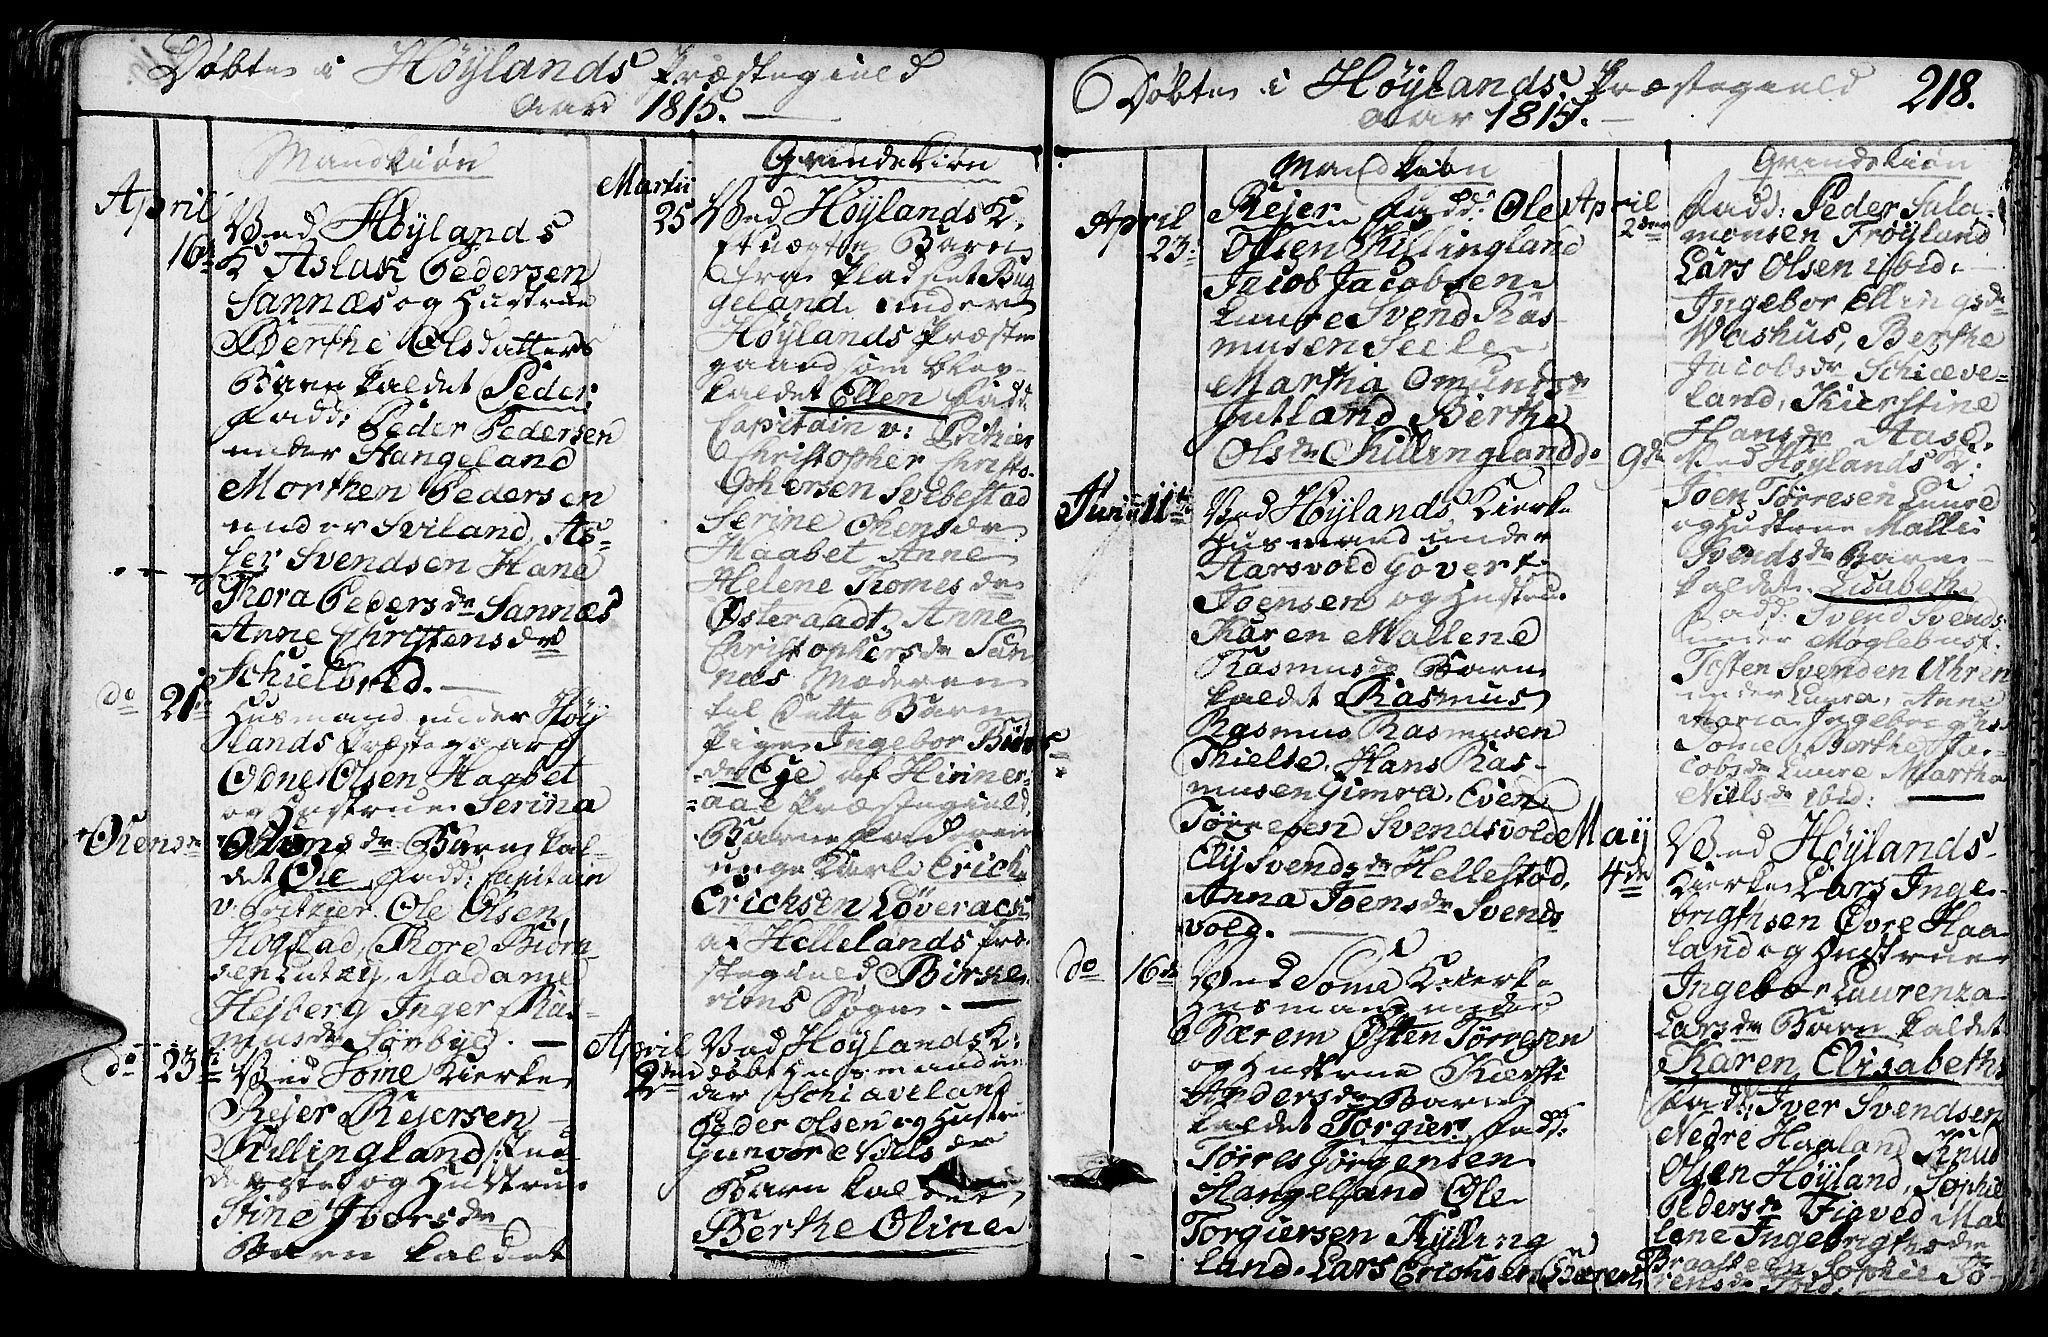 Døbte i Høylands Præstegield
Aar 1815.
Mandkiøn
April
16de
Ved Høylands
K Aslak Pedersen
Sannæs og Hustrue
Berthe Olsdatters
Barn kaldet Peder
Fadd: Peder Pedersen
under Hangeland
Morthen Pedersen
under Sviland, As-
ser Svendsen Hane
Thora Pedersdr Sannæs
Anne Christensdr
Schielbred.
do 21
Husmand under Høy
lands Præstegaard
Odne Olsen Haabet
og Hustrue Serina
Otensdr Barn kal-
det Ole, Fadd: Capitain
v: Fritzier. Ole Olsen
Hogstad, Thore Biørn
sen Lutzij, Madame
Hejberg Inger Ras-
musdr Sørbye.
do 23
Ved Some Kierke
Rejer Rejersen
Killingland
og Hustrue
Stine Iversdr
Barn kaldet
Qvindekiøn
Martii
25
Ved Høylands K.
et uægte Barn
fra Pladset Bug
geland under
Høylands Præste
gaard som blev
kaldet Ellen Fadd:
Capitain v: Fritzier
Christopher Christo-
phersen Svebestad
Serine Otensdr
Haabet Anne
Helene Thomesdr
Østeraadt, Anne
Christophersdr San
næs Moderen
til dette Barn
Pigen Ingebor Biørns
dr Eye af Hinner-
aae Præstegield,
Barnefaderen
unge Karl Erich
Erichsen Løverack
af Hellelands Præ-
stegield Birke-
riems Sogn.
April
2den
Ved Høylands K:
døbt Husmand un
der Schiaveland
Peder Olsen og Hustr
Gunvorde Nilsdr
Barn kaldet
Berthe Oline
Døbte i Høylands Præstegield
Aar 1815.
218.
Mandkiøn
April
23
Rejer Fadd: Ole
Olsen Killingland
Jacob Jacobsen
Luure Svend Ras-
musen Seele
Martha Omundsdr
Jutland Berthe
Olsdr Killingland
Junii 11te
Ved Høylands Kierke
Husmand under
Aarsvold Govert
Joensen og Hustru
Karen Mallene
Rasmusdr Barn
kaldet Rasmus
Rasmus Rasmusen
Thielse, Hans Ras-
musen Gimra, Even
Tørresen Svendsvold
Elij Svendsdr Hellestød,
Anna Joensdr Svends
vold.
do 16de
Ved Some Kierke
Husmand under
Bærem Østen Tørresen
og Hustrue Kiersti
Andersdr Barn
kaldet Torgier, Fadd:
Tørres Jørgensen
Hangelland Ole
Torgiersen Kylling
land. Lars Erichsen Bærem
Qvindekiøn
April
2den
Fadd: Peder Sala-
monsen Frøyland
Lars Olsen ibid:
Ingebor Ellingsdr
Washus, Berthe
Jacobsdr Schiæve-
land, Kierstine
Hansdr Aase.
9de
Ved Høylands K:
Joen Tørresen Luure
og Hustrue Malli
Svendsdr Barn
kaldet Lisabeth
Fadd: Svend Svends
under Moglebust
Tosten Svenden Uhren
under Luura, Anne
Maria Ingebrigts
Some, Berthe Ja-
cobsdr Luure Martha
Nielsdr ibid:
Maij
4de
Ved Høylands
Kierke Lars Inge-
brigtsen Øvre Haa
land og Hustrue
Ingebor Laurenza
Larsdr Barn kaldet
Karen Elisabeth
Fadd: Iver Svendsen
Nedre Haaland Knud
Olsen Høyland, Sophie
Pedersdr Fieved Mal
lene Ingebrigtsdr
Braasteen Sophie Tø-
rensdr Ibid.